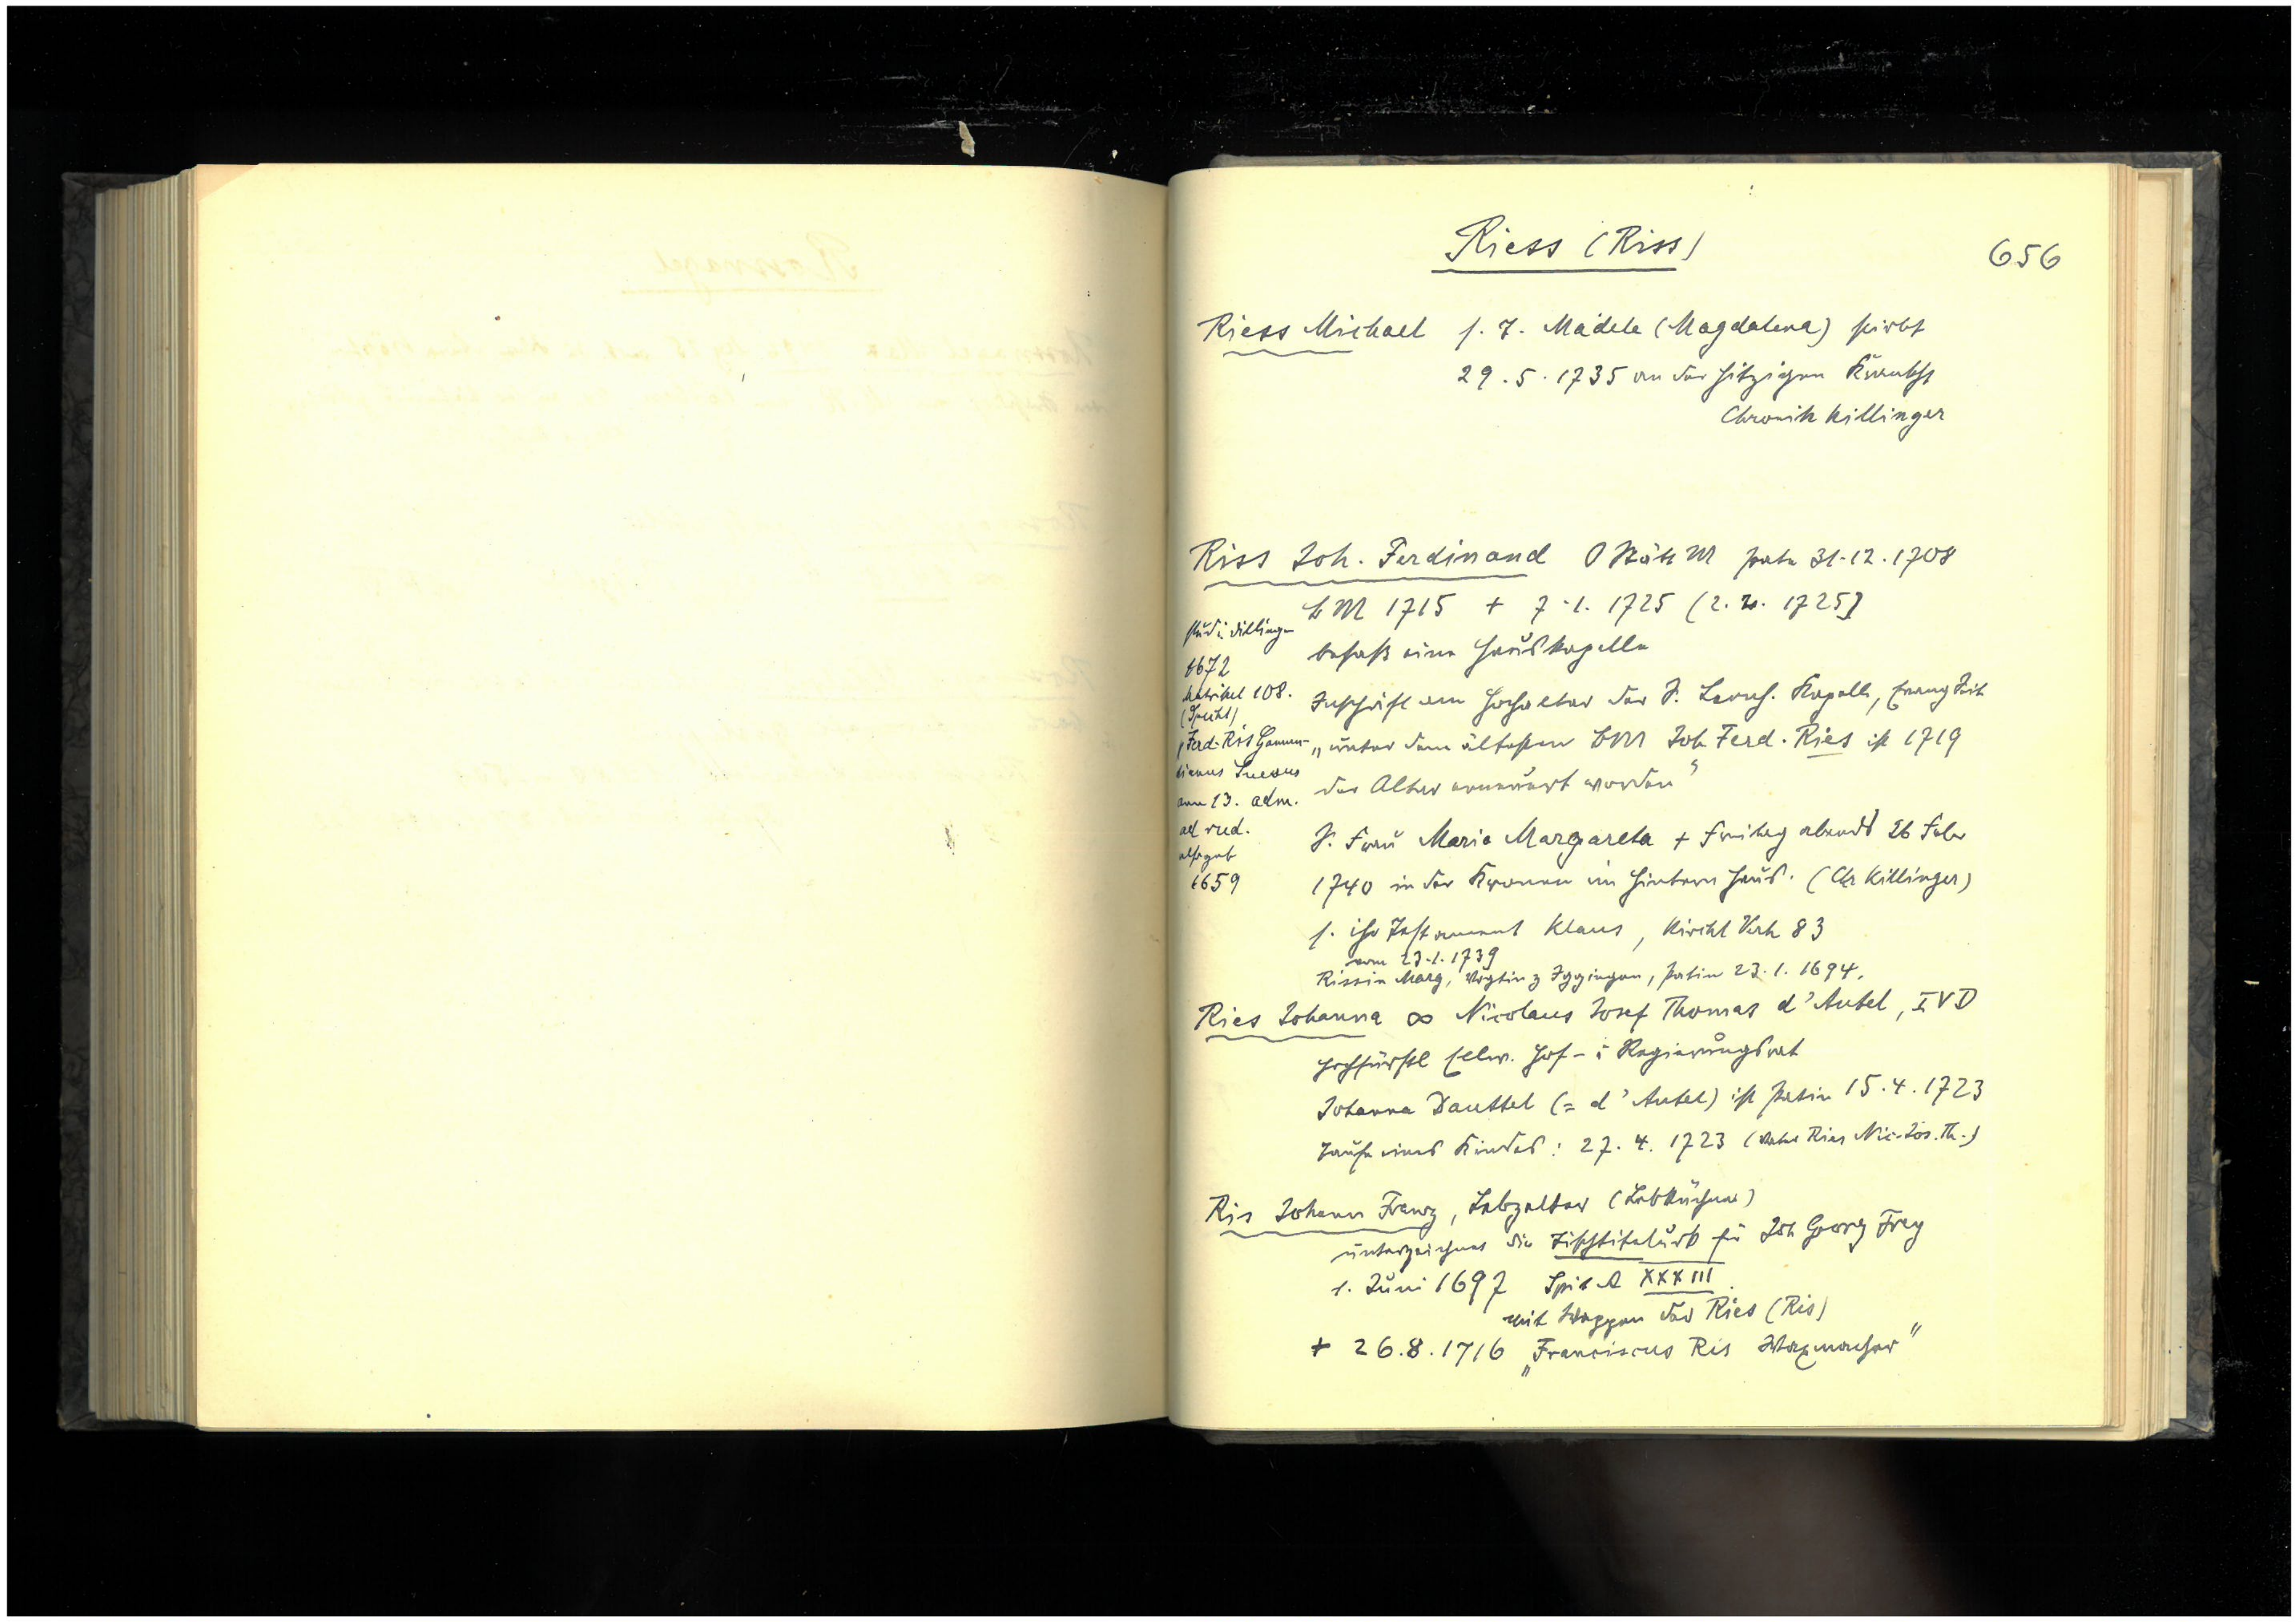 Riess (Riss)
656
Riess Michael s. T. Mädele (Magdalena) stirbt
29.5.1735 an der hitzigen Krankht
Chronik Killinger
Riss Joh. Ferdinand O Stätt M pate 31.12.1708
b M 1715 + 7.1.1725 (2. . 1725)
besaß eine Hauskapelle
Inschrift am Hochaltar der St. Leonh. Kapelle, Evang Seite
„unter dem ältesten bM Joh Ferd. Ries ist 1719
der Altar erneuert worden"
S. Frau Maria Margareta + Freitag abends 26 Febr
1740 in der Kronen im hintern Haus. (Chr Killinger)
s. ihr Testament Klaus, Kirchl Verh 83
vom 23.1.1739
Rissin Marg, Vögtin z Iggingen, Patin 23.1.1694.
stud i. Dillingen
1672
Matrikel 108.
(Specht)
„Ferd. Ris Gamun-
dianus Suevus
ann 13. adm.
ad rud.
also geb
1659
Ries Johanna ∞ Nicolaus Josef Thomas d'Autel, IVD
hochfürstl ellw. Hof- u Regierungsrat
Johanna Dauttel (= d'Autel) ist Patin 15.4.1723
Taufe eines Kindes: 27.4.1723 (Vater Ries Nic. Jos. Th.)
Ris Johann Franz, Lebzelter (Lebküchner)
unterzeichnet die Tischtitelurk für Joh Georg Frey
1. Juni 1697 Spit A XXXIII.
mit Wappen der Ries (Ris)
+ 26.8.1716 „Franciscus Ris Waxmacher"